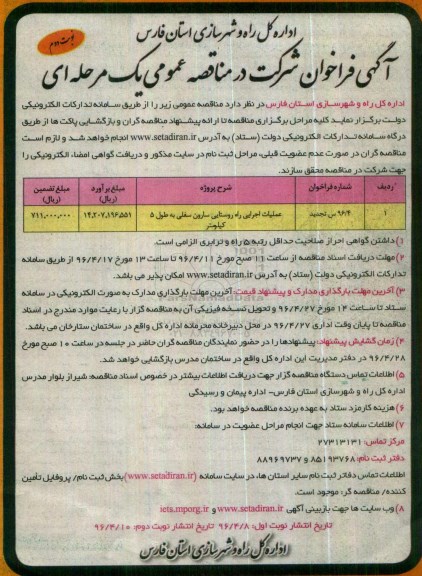 اداره کل راه و شهرسازی استان فارس
نوبت دوم
آگهی فراخوان شرکت در مناقصه عمومی یک مرحله ای
اداره کل راه و شهرسازی استان فارس در نظر دارد مناقصه عمومی زیر را از طریق سامانه تدارکات الکترونیکی
دولت برگزار نماید کلیه مراحل برگزاری مناقصه تا ارائه پیشنهاد مناقصه گران و بازگشایی پاکت ها از طریق
درگاه سامانه تدارکات الکترونیکی دولت (ستاد) به آدرس www.setadiran.ir انجام خواهد شد و لازم است
مناقصه گران در صورت عدم عضویت قبلی، مراحل ثبت نام در سایت مذکور و دریافت گواهی امضاء الکترونیکی را
جهت شرکت در مناقصه محقق سازند.
ردیف شماره فراخوان شرح پروژه مبلغ برآورد (ریال) مبلغ تضمین (ریال)
۱ ۹۶/۴ س تجدید عملیات اجرایی راه روستایی سارون سفلی به طول ۵ کیلومتر ۱۴,۲۰۷,۱۹۶,۵۵۱ ۷۱۱,۰۰۰,۰۰۰
۱) داشتن گواهی احراز صلاحیت حداقل رتبه ۵ راه و ترابری الزامی است.
۲) مهلت دریافت اسناد مناقصه از ساعت ۱۱ صبح مورخ ۹۶/۴/۱۱ تا ساعت ۱۳ مورخ ۹۶/۴/۱۷ از طریق سامانه
تدارکات الکترونیکی دولت (ستاد) به آدرس www.setadiran.ir امکان پذیر می باشد.
۳) آخرین مهلت بارگذاری مدارک و پیشنهاد قیمت: آخرین مهلت بارگذاری مدارک به صورت الکترونیکی در سامانه
ستاد تا ساعت ۱۴ مورخ ۹۶/۴/۲۷ و تحویل نسخه فیزیکی آن به مناقصه گزار با رعایت موارد مندرج در اسناد
مناقصه تا پایان وقت اداری ۹۶/۴/۲۷ در محل دبیرخانه محرمانه اداره کل واقع در ساختمان ستارخان می باشد.
۴) زمان گشایش پیشنهاد: پیشنهادها را در حضور نمایندگان مناقصه گران حاضر در جلسه در ساعت ۱۰ صبح مورخ
۹۶/۴/۲۸ در دفتر مدیریت این اداره کل واقع در ساختمان مدرس بازگشایی خواهد شد.
۵) اطلاعات تماس دستگاه مناقصه گزار جهت دریافت اطلاعات بیشتر در خصوص اسناد مناقصه: شیراز بلوار مدرس
اداره کل راه و شهرسازی استان فارس- اداره پیمان و رسیدگی
۶) هزینه کارمزد ستاد به عهده برنده مناقصه خواهد بود.
۷) اطلاعات سامانه ستاد جهت انجام مراحل عضویت در سامانه:
مرکز تماس: ۲۷۳۱۳۱۳۱
دفتر ثبت نام: ۸۵۱۹۳۷۶۸ و ۸۸۹۶۹۷۳۷
اطلاعات تماس دفاتر ثبت نام سایر استان ها، در سایت سامانه (www.setadiran.ir) بخش ثبت نام/ پروفایل تأمین
کننده/ مناقصه گر: موجود است.
۸) وب سایت ها جهت بازبینی آگهی www.setadiran.ir و iets.mporg.ir
تاریخ انتشار نوبت اول: ۹۶/۴/۸ تاریخ انتشار نوبت دوم: ۹۶/۴/۱۰
اداره کل راه و شهرسازی استان فارس